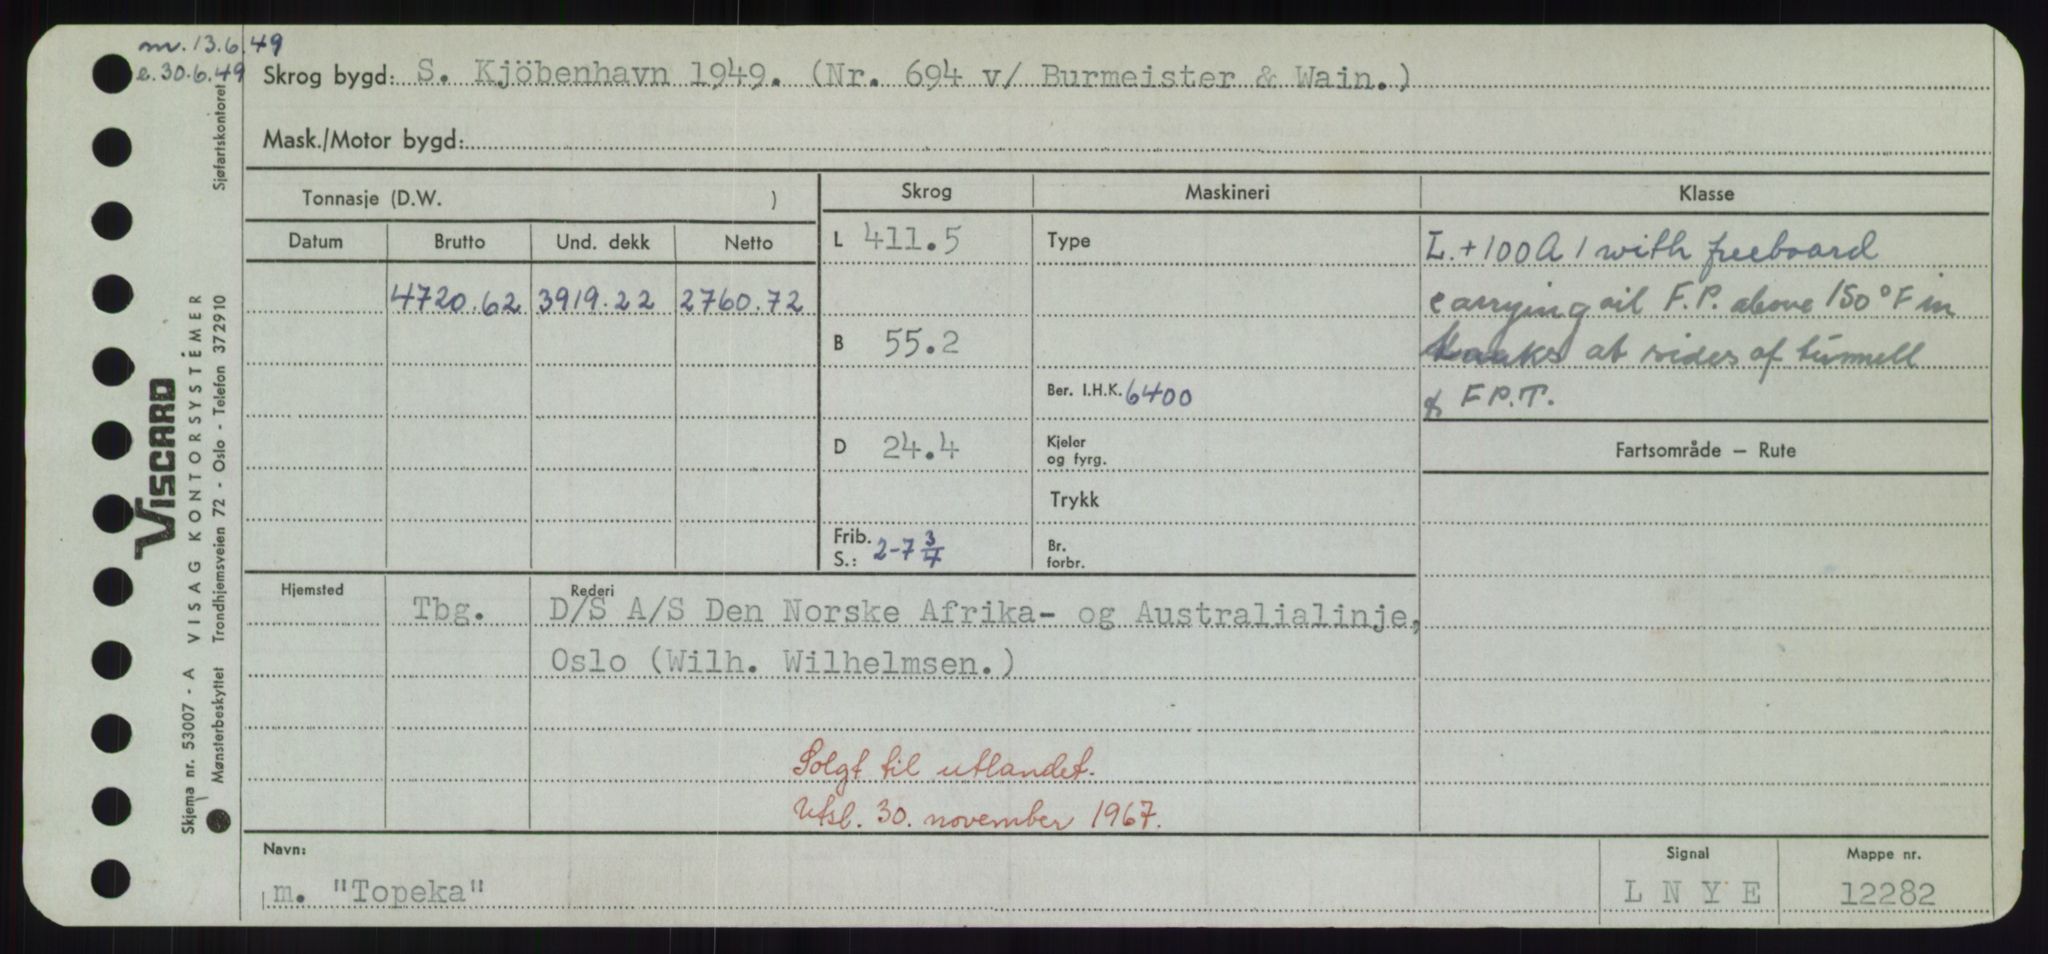 m. 13.6.49
e. 30.6.49
Skrog bygd: S. Kjöbenhavn 1949. (Nr. 694 v/ Burmeister & Wain.)
Mask./Motor bygd:
Tonnasje (D.W. )
Skrog Maskineri Klasse
Datum Brutto Und. dekk Netto
4720.62 3919.22 2760.72
L 411.5
B 55.2
D 24.4
Frib. S.: 2-7 3/4
Type
Ber. I.H.K. 6400
Kjeler
og fyrg.
Trykk
Br.
forbr.
L. + 100 A 1 with freeboard
carrying oil F.P. above 150° F in
tanks at sides of tunnell
& F P.T.
Fartsområde – Rute
Hjemsted Rederi
Tbg. D/S A/S Den Norske Afrika- og Australialinje,
Oslo (Wilh. Wilhelmsen.)
Solgt til utlandet.
Utsl. 30. november 1967.
Navn: Signal Mappe nr.
m. "Topeka" L N Y E 12282
VISCARD
Skjema nr. 53007 - A VISAG KONTORSYSTEMER
Mønsterbeskyttet Trondhjemsveien 72 - Oslo - Telefon 372910 Sjøfartskontoret